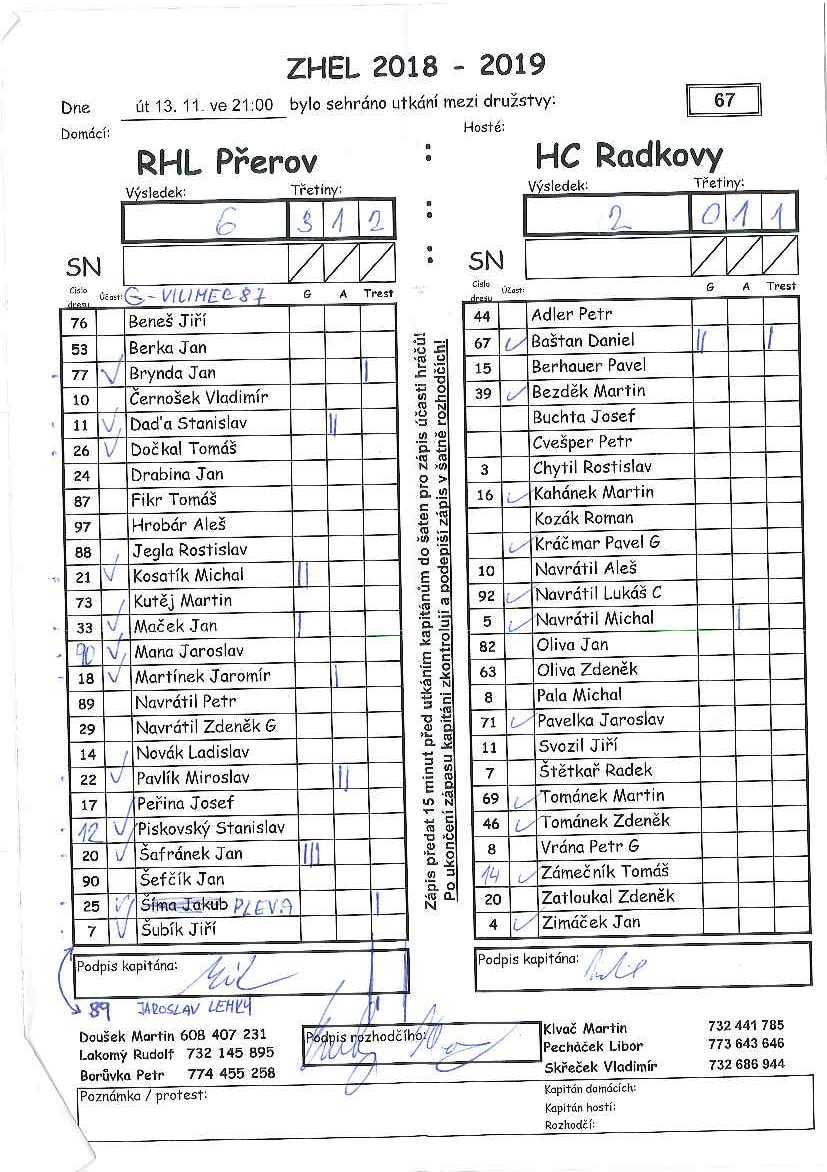 ZHEL 2018 - 2019
Dne út 13. 11. ve 21:00 bylo sehráno utkání mezi družstvy: 67
Domácí: Hosté:
RHL Přerov : HC Radkovy
Výsledek: Třetiny: Výsledek: Třetiny:
6 3 1 2 : 2 0 1 1
SN : SN
Číslo dresu Účast: G - VILIMEC 87 G A Trest
76 Beneš Jiří
53 Berka Jan
77 Brynda Jan I
10 Černošek Vladimír
11 Daďa Stanislav II
26 Dočkal Tomáš
24 Drabina Jan
87 Fikr Tomáš
97 Hrobár Aleš
88 Jegla Rostislav
21 Kosatík Michal II
73 Kutěj Martin
33 Maček Jan I
90 Mana Jaroslav
18 Martínek Jaromír I
89 Navrátil Petr
29 Navrátil Zdeněk G
14 Novák Ladislav
22 Pavlík Miroslav II
17 Peřina Josef
12 Piskovský Stanislav
20 Šafránek Jan III
90 Šefčík Jan
25 Šíma Jakub PLEVA I
7 Šubík Jiří
Podpis kapitána:
89 JAROSLAV LEHKÝ
Zápis předat 15 minut před utkáním kapitánům do šaten pro zápis účasti hráčů!
Po ukončení zápasu kapitáni zkontrolují a podepíší zápis v šatně rozhodčích!
Číslo dresu Účast: G A Trest
44 Adler Petr
67 Baštan Daniel II I
15 Berhauer Pavel
39 Bezděk Martin
Buchta Josef
Cvešper Petr
3 Chytil Rostislav
16 Kahánek Martin
Kozák Roman
Kráčmar Pavel G
10 Navrátil Aleš
92 Navrátil Lukáš C
5 Navrátil Michal I
82 Oliva Jan
63 Oliva Zdeněk
8 Pala Michal
71 Pavelka Jaroslav
11 Svozil Jiří
7 Štětkař Radek
69 Tománek Martin
46 Tománek Zdeněk
8 Vrána Petr G
14 Zámečník Tomáš
20 Zatloukal Zdeněk
4 Zimáček Jan
Podpis kapitána:
Doušek Martin 608 407 231
Lakomý Rudolf 732 145 895
Borůvka Petr 774 455 258
Podpis rozhodčího:
Klvač Martin 732 441 785
Pecháček Libor 773 643 646
Skřeček Vladimír 732 686 944
Poznámka / protest:
Kapitán domácích:
Kapitán hostí:
Rozhodčí: